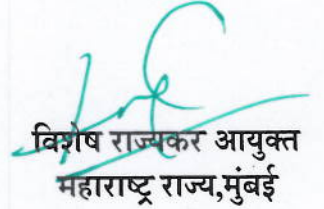 विशेष राज्यकर आयुक्त
महाराष्ट्र राज्य,मुंबई